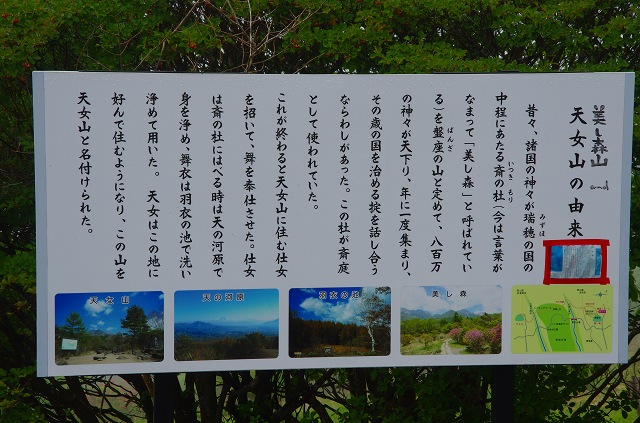 美し森山 and
天女山の由来
昔々、諸国の神々が瑞穂の国の
みずほ
中程にあたる斎の杜（今は言葉が
いつき もり
なまって「美し森」と呼ばれてい
る）を盤座の山と定めて、八百万
ばんざ
の神々が天下り、年に一度集まり、
その歳の国を治める掟を話し合う
ならわしがあった。この杜が斎庭
として使われていた。
これが終わると天女山に住む仕女
を招いて、舞を奉仕させた。仕女
は斎の杜にはべる時は天の河原で
身を浄め、舞衣は羽衣の池で洗い
浄めて用いた。 天女はこの地に
好んで住むようになり、この山を
天女山と名付けられた。
天女山
天の河原
羽衣の池
美し森